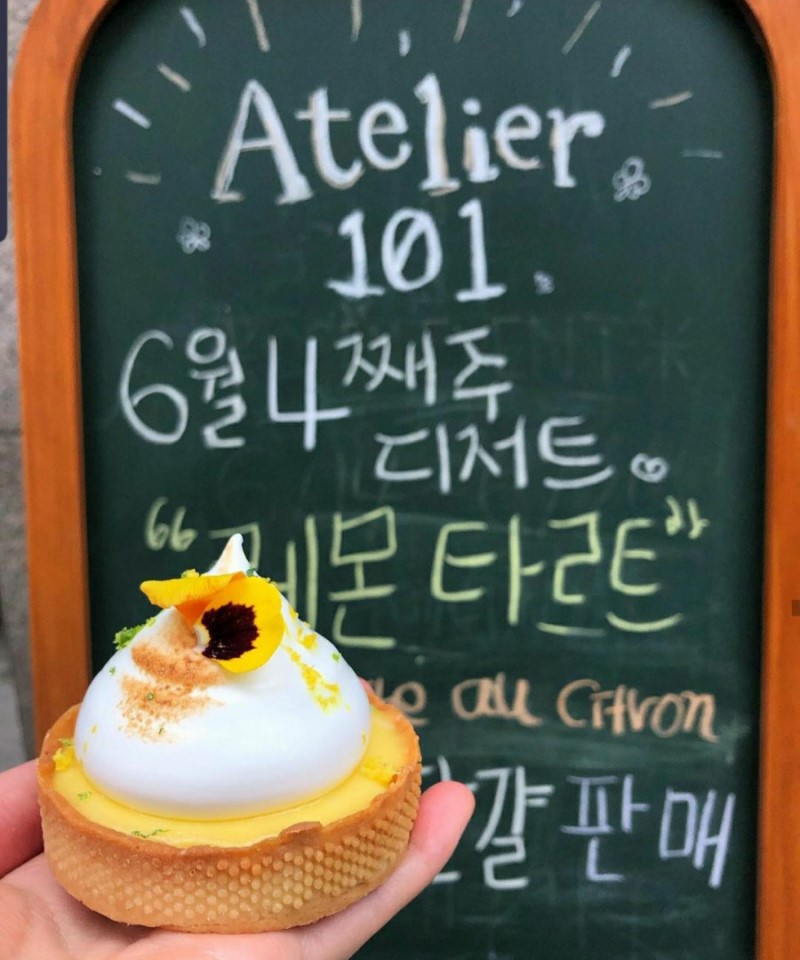 Atelier
101.
6월 4째주
디저트
“레몬 타르트”
au citron
판매